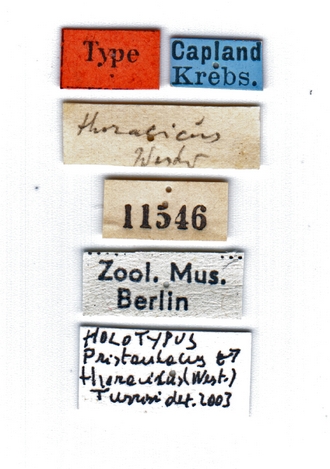 Type
Capland
Krebs.
thoracicus
Westw
11546
Zool. Mus.
Berlin
HOLOTYPUS
Pristaulacus
thoracicus (West.)
Turrisi det. 2003